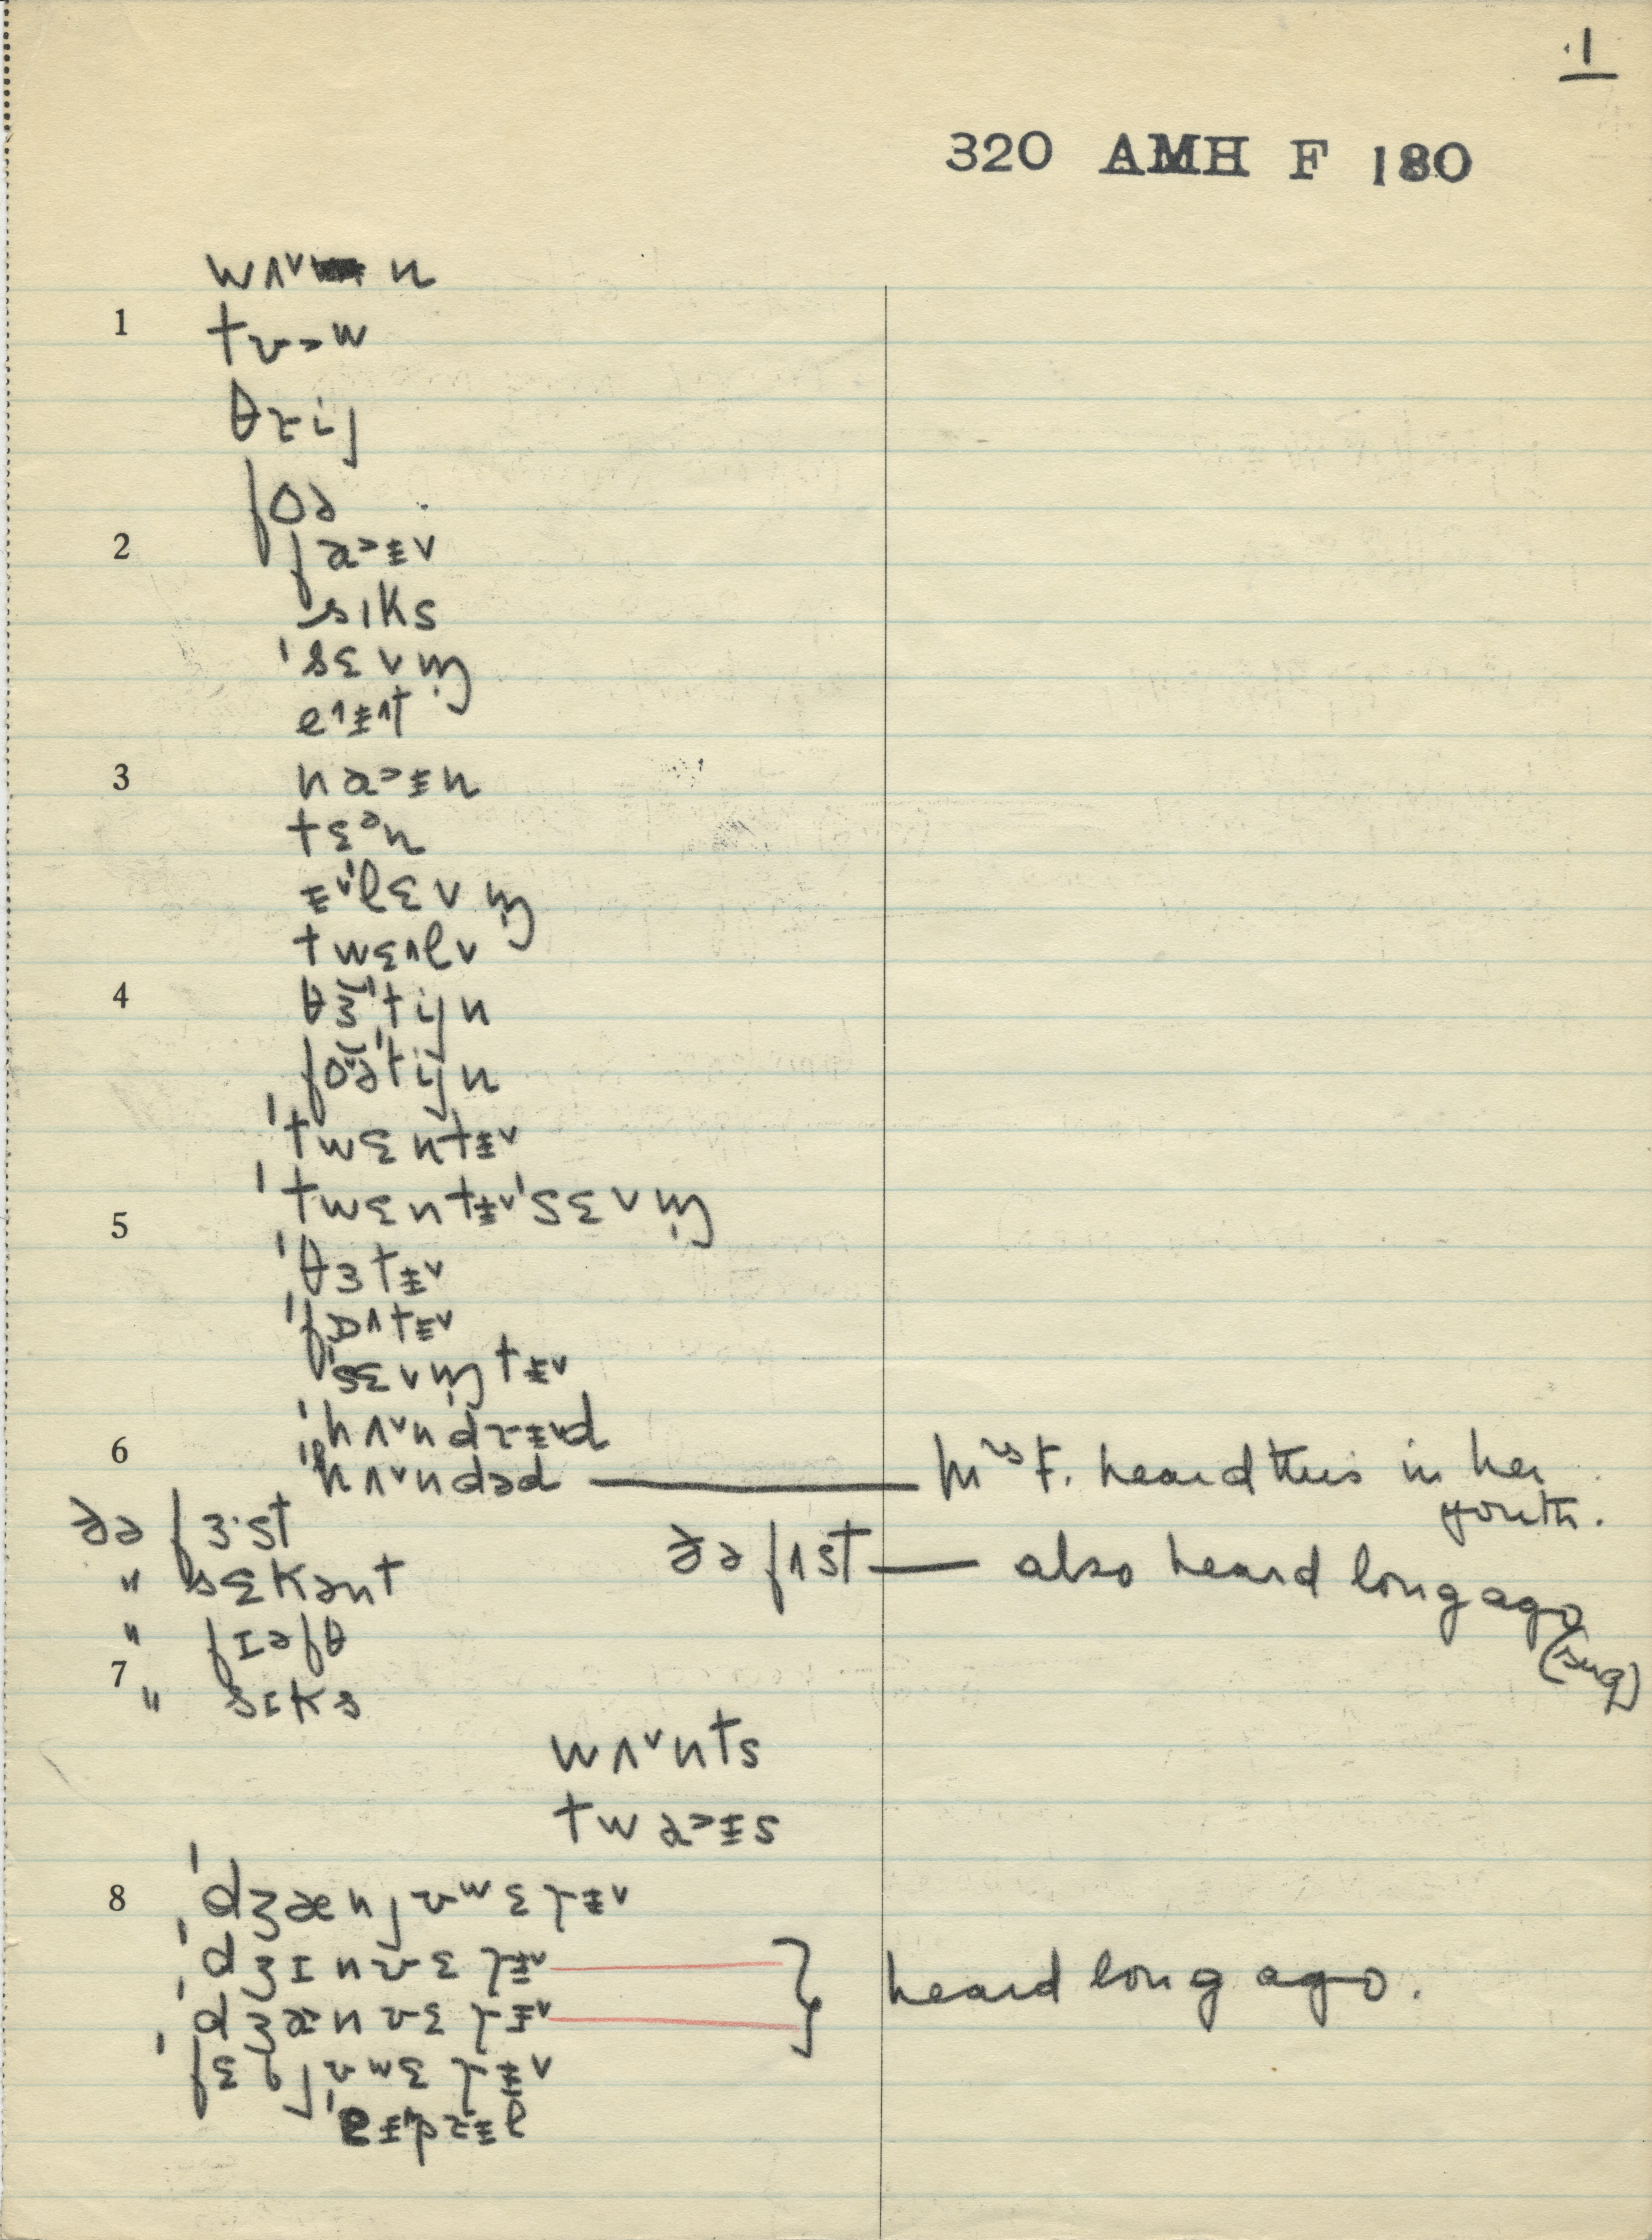 1
320 AMH F 180
wʌ˅n
1 tʊ˃w
θɽij
foə
2 fa˃ɪ̵v
sɪks
ˈsɛvm̩
e˄ɪ̵˄t
3 na˃ɪ̵n
tɛᵊn
ɪ̵˅ˈlɛvm̩
twɛ˄lv
4 θɜˈtijn
foəˈtijn
ˈtwɛntɪ̵˅
ˈtwɛntɪ̵˅ˈsɛvm̩
5 ˈθɜtɪ̵˅
ˈfɒ˄tɪ̵˅
ˈsɛvm̩tɪ̵˅
ˈhʌ˅ndɽɪ̵˅d
6 ˈhʌ˅ndəd — Mrs F. heard this in her youth.
ðə fɜ·st
ðə fʌst — also heard long ago (sug)
" sɛkənt
" fɪəfθ
7 " sɪks
wʌ˅nts
twa˃ɪ̵s
8 ˈdʒænjʊʷɛˌɽɪ̵˅
ˈdʒɪnʊɛˌɽɪ̵˅
ˈdʒænʊɛˌɽɪ̵˅ } heard long ago.
ˈfɛbjʊʷɛˌɽɪ̵˅
ˈeɪ̵pɽɪ̵l